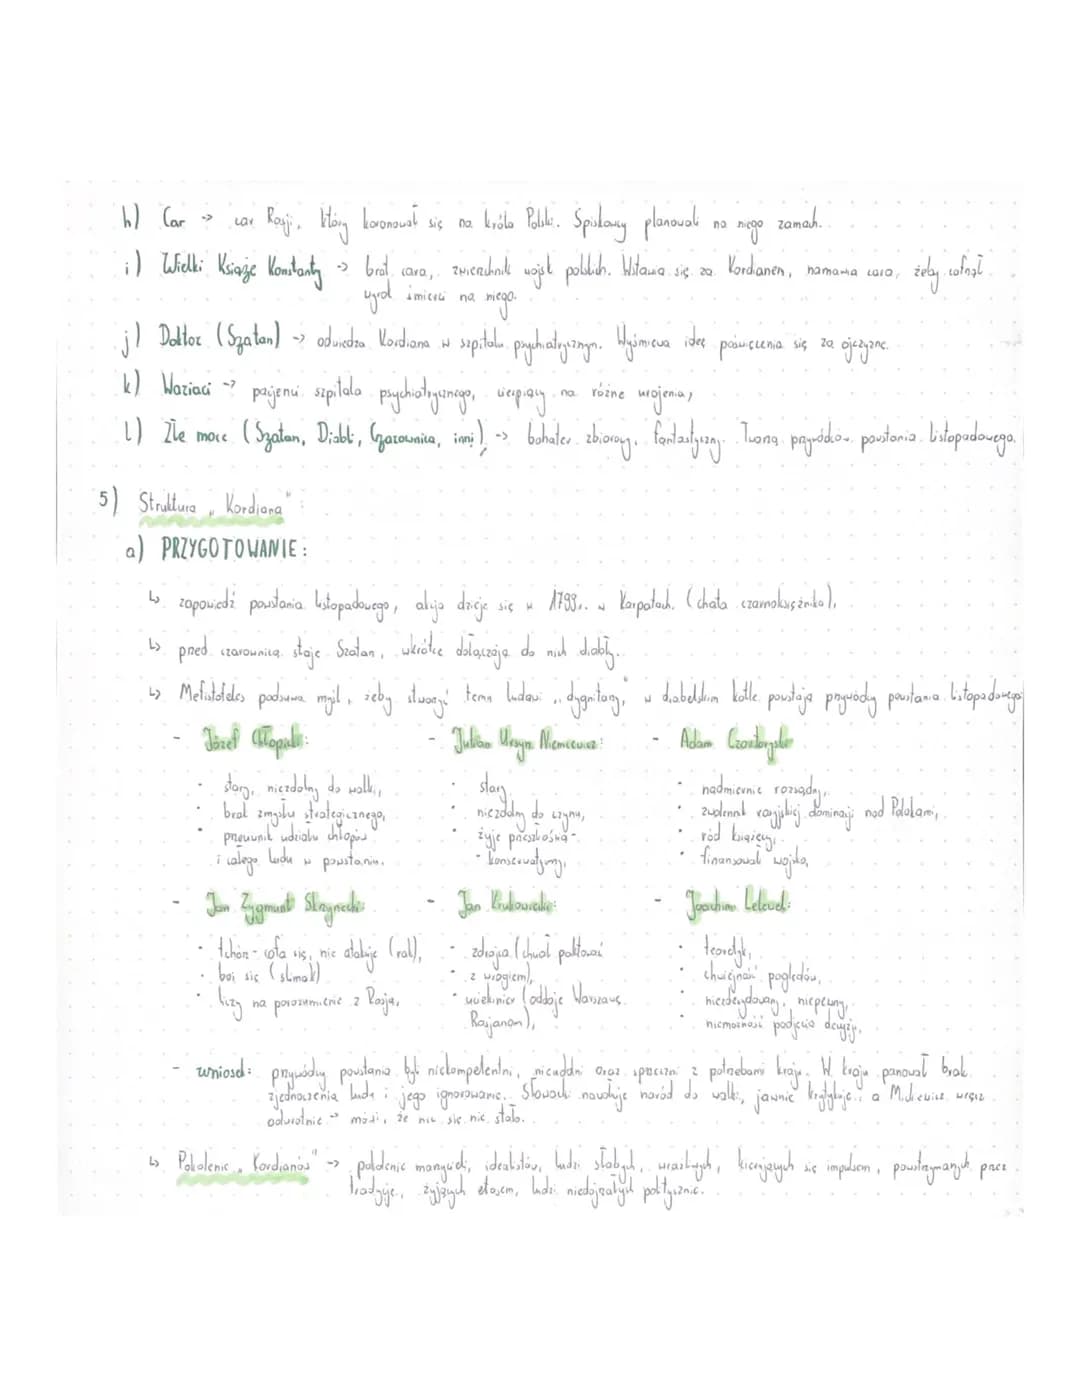 h) Car -> car Rosji, który koronował się na króla Polski. Spiskowcy planowali na niego zamach.
i) Wielki Książę Konstanty -> brat cara, zwierzchnik wojsk polskich. Wstawia się za Kordianem, namawia cara, żeby cofnął
wyrok śmierci na niego.
j) Doktor (Szatan) -> odwiedza Kordiana w szpitalu psychiatrycznym. Wyśmiewa ideę poświęcenia się za ojczyznę.
k) Wariaci -> pacjenci szpitala psychiatrycznego, cierpiący na różne urojenia,
l) Złe moce (Szatan, Diabli, Czarownica, inni) -> bohater zbiorowy, fantastyczny. Tworzą przywódców powstania listopadowego.
5) Struktura „Kordiana":
a) PRZYGOTOWANIE:
↳ zapowiedź powstania listopadowego, akcja dzieje się w 1799r. w Karpatach. (chata czarnoksiężnika),
↳ przed czarownicą staje Szatan, wkrótce dołączają do nich diabły.
↳ Mefistofeles podsuwa myśl, żeby stworzyć temu ludowi „dygnitarzy," w diabelskim kotle powstają przywódcy powstania listopadowego
- Józef Chłopicki: - Julian Ursyn Niemcewicz: - Adam Czartoryski
• stary, niezdolny do walki, • stary • nadmiernie rozsądny,
• brak zmysłu strategicznego, • niezdolny do czynu, • zwolennik rosyjskiej dominacji nad Polakami,
• przeciwnik udziału chłopów • żyje przeszłością - • ród książęcy,
i całego ludu w powstaniu. • konserwatywny, • finansował wojsko,
- Jan Zygmunt Skrzynecki: - Jan Krukowiecki: - Joachim Lelewel:
• tchórz - cofa się, nie atakuje (rak), • zdrajca (chciał paktować • teoretyk,
• boi się (ślimak) z wrogiem), • chwiejność poglądów,
• liczy na porozumienie z Rosją, • uciekinier (oddaje Warszawę • niezdecydowany, niepewny,
Rosjanom), • niemożność podjęcia decyzji,
- wniosek: przywódcy powstania byli niekompetentni, nieudolni oraz sprzeczni z potrzebami kraju. W kraju panował brak
zjednoczenia ludu i jego ignorowanie. Słowacki nawołuje naród do walki, jawnie krytykuje, a Mickiewicz wręcz
odwrotnie -> mówi, że nic się nie stało.
↳ Pokolenie „Kordianów" -> pokolenie marzycieli, idealistów, ludzi słabych, wrażliwych, kierujących się impulsem, powstrzymanych przez
tradycję, żyjących etosem, ludzi niedojrzałych politycznie.